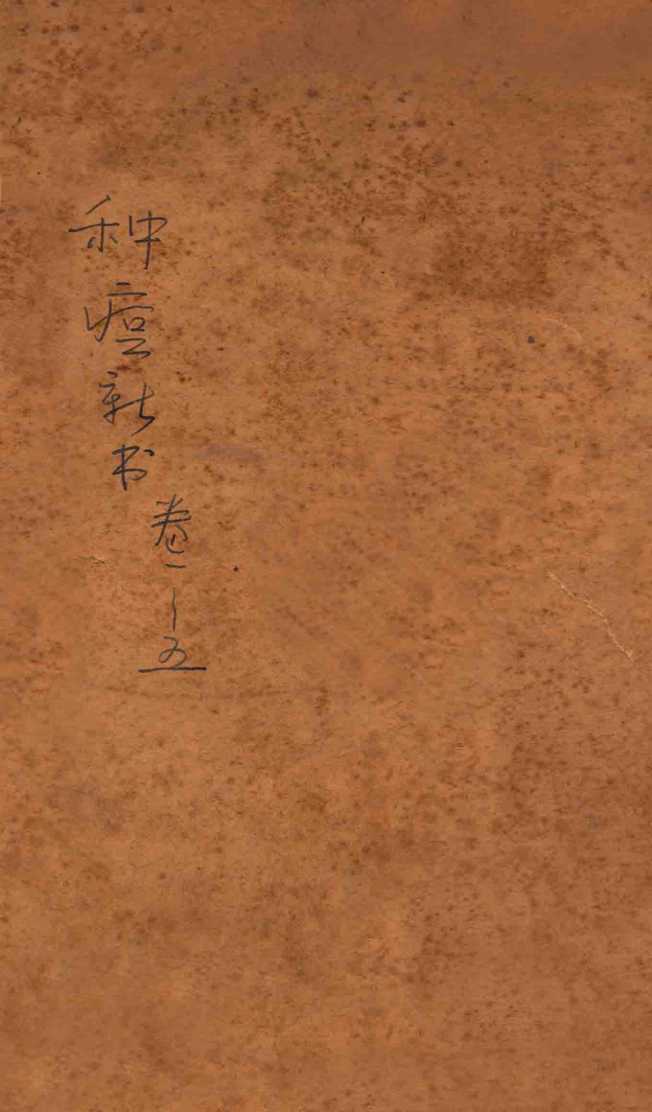 种痘新书
卷一~五